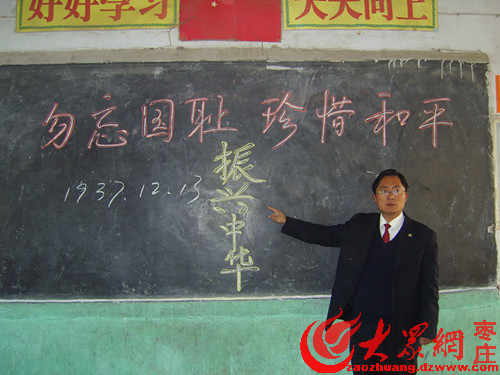 好好学习 天天向上
勿忘国耻 珍惜和平
1937.12.13
振兴中华
大众網 枣庄
zaozhuang.dzwww.com